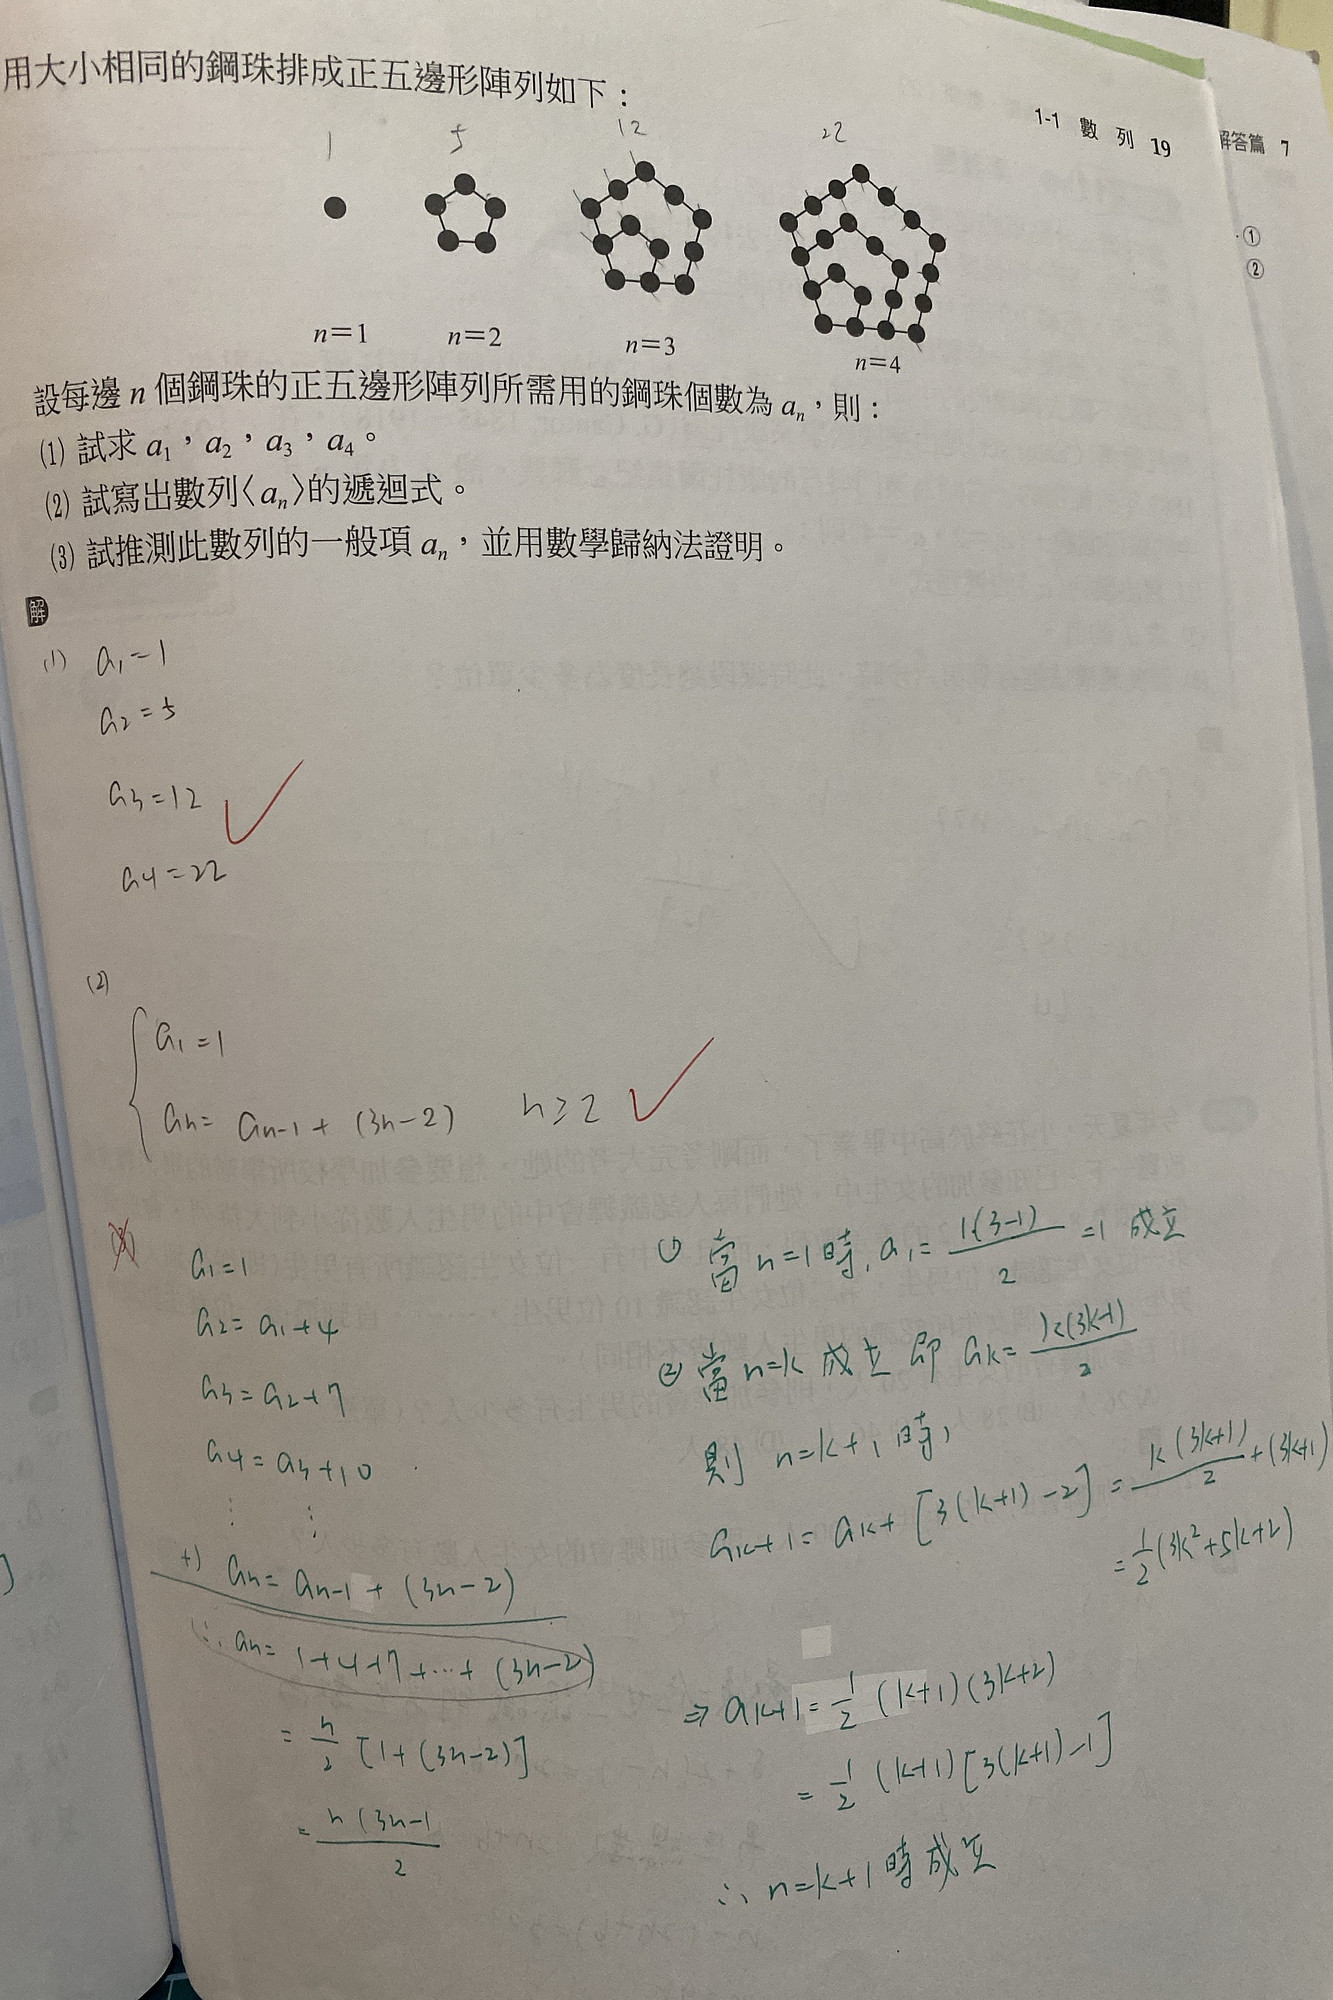 用大小相同的鋼珠排成正五邊形陣列如下：
1-1 數列 19
解答篇 7
①
②
1 5 12 22
n=1 n=2 n=3 n=4
設每邊 n 個鋼珠的正五邊形陣列所需用的鋼珠個數為 aₙ，則：
(1) 試求 a₁，a₂，a₃，a₄。
(2) 試寫出數列〈aₙ〉的遞迴式。
(3) 試推測此數列的一般項 aₙ，並用數學歸納法證明。
解
(1) a₁=1
a₂=5
a₃=12
a₄=22
(2)
a₁=1
aₙ= aₙ₋₁+(3n-2) n≥2
(3)
a₁=1
a₂=a₁+4
a₃=a₂+7
a₄=a₃+10
⋮ ⋮
+) aₙ=aₙ₋₁+(3n-2)
∴aₙ= 1+4+7+…+(3n-2)
= n/2 [1+(3n-2)]
= n(3n-1/2
(1) 當n=1時, a₁= 1·(3-1)/2 =1 成立
② 當n=k 成立 即 aₖ= k(3k-1)/2
則 n=k+1 時,
aₖ₊₁=aₖ+[3(k+1)-2]= k(3k+1)/2 +(3k+1)
= 1/2(3k²+5k+2)
⇒ aₖ₊₁= 1/2 (k+1)(3k+2)
= 1/2 (k+1)[3(k+1)-1]
∴ n=k+1 時成立